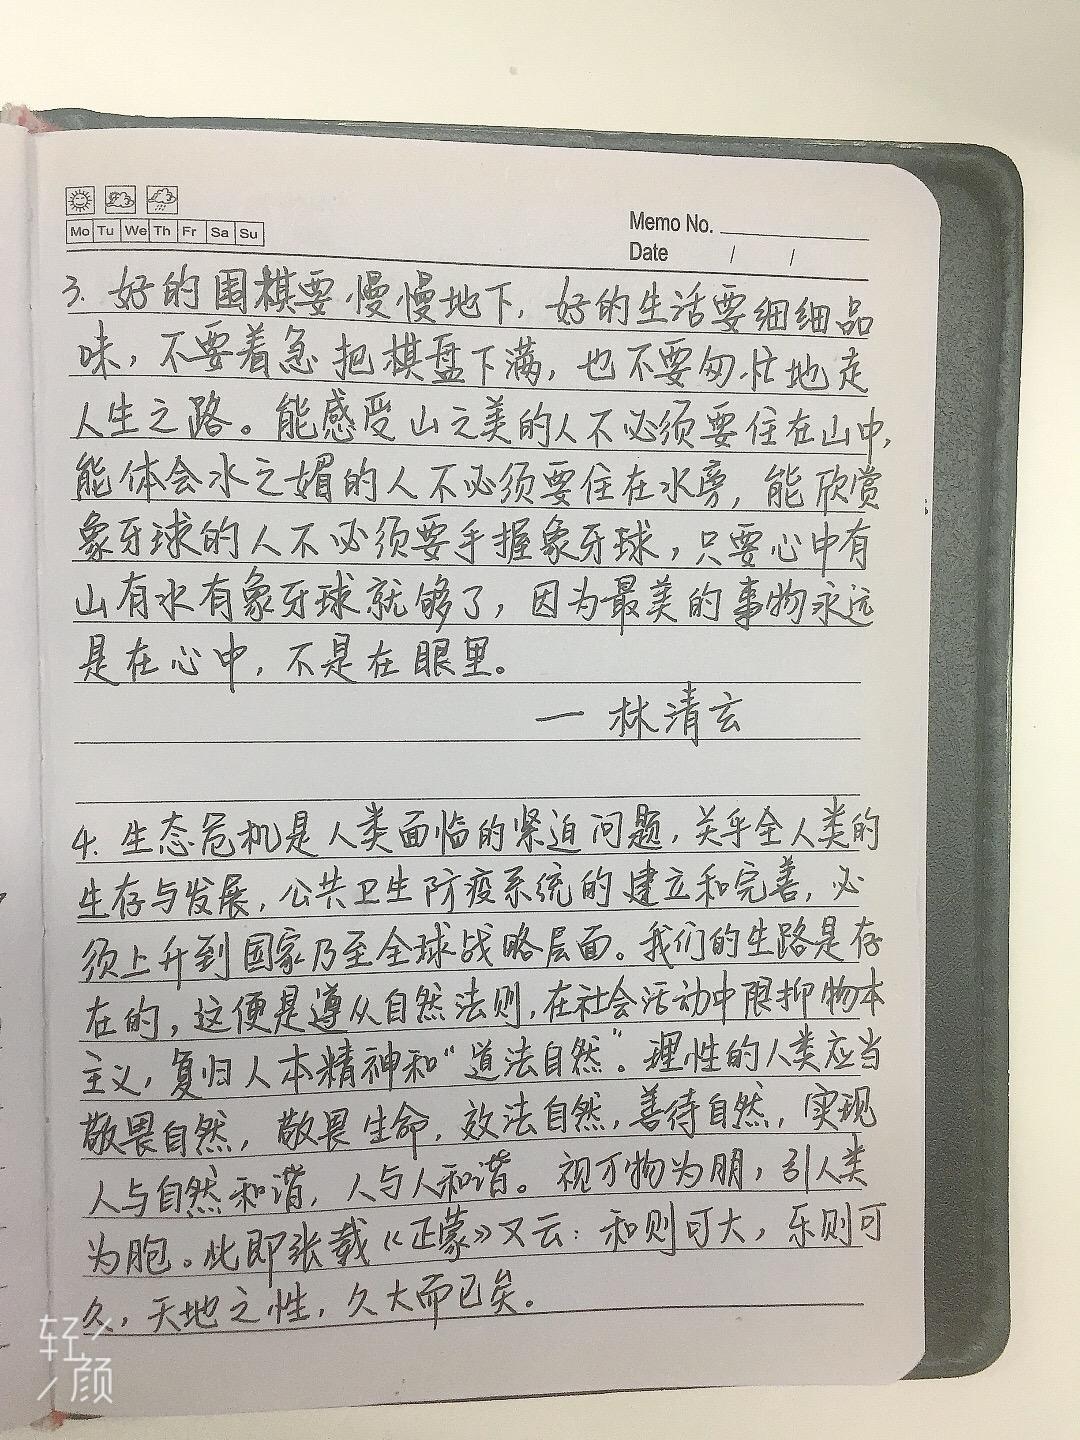 Mo Tu We Th Fr Sa Su
Memo No.
Date / /
3. 好的围棋要慢慢地下，好的生活要细细品
味，不要着急把棋盘下满，也不要匆忙地走
人生之路。能感受山之美的人不必须要住在山中，
能体会水之媚的人不必须要住在水旁，能欣赏
象牙球的人不必须要手握象牙球，只要心中有
山有水有象牙球就够了，因为最美的事物永远
是在心中，不是在眼里。
— 林清玄
4. 生态危机是人类面临的紧迫问题，关乎全人类的
生存与发展，公共卫生防疫系统的建立和完善，必
须上升到国家乃至全球战略层面。我们的生路是存
在的，这便是遵从自然法则，在社会活动中限抑物本
主义，复归人本精神和“道法自然”。理性的人类应当
敬畏自然，敬畏生命，效法自然，善待自然，实现
人与自然和谐，人与人和谐。视万物为朋，引人类
为胞。此即张载《正蒙》又云：和则可大，乐则可
久，天地之性，久大而已矣。
轻
颜